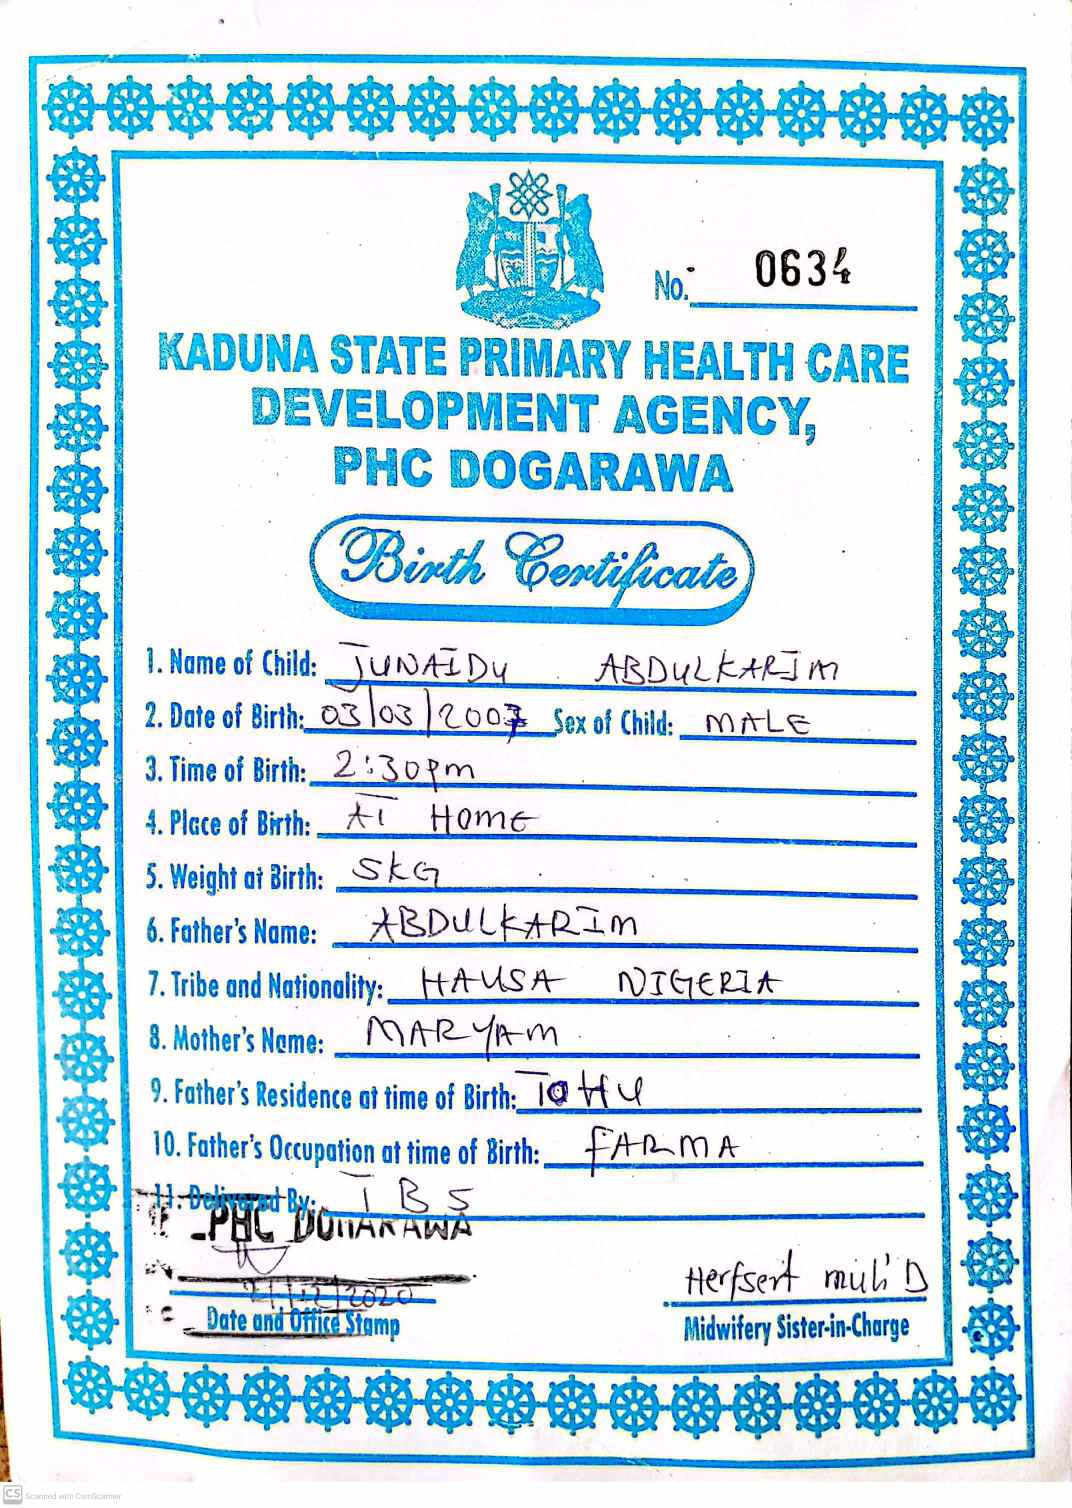 No. 0634
KADUNA STATE PRIMARY HEALTH CARE
DEVELOPMENT AGENCY,
PHC DOGARAWA
Birth Certificate
1. Name of Child: JUNAIDU ABDULKARIM
2. Date of Birth: 03/03/2007 Sex of Child: MALE
3. Time of Birth: 2:30pm
4. Place of Birth: AT HOME
5. Weight at Birth: 5KG
6. Father's Name: ABDULKARIM
7. Tribe and Nationality: HAUSA NIGERIA
8. Mother's Name: MARYAM
9. Father's Residence at time of Birth: TOHU
10. Father's Occupation at time of Birth: FARMA
11. Delivered By: TBS
PHC DOGARAWA
/12/2020
Date and Office Stamp
Midwifery Sister-in-Charge
CS Scanned with CamScanner